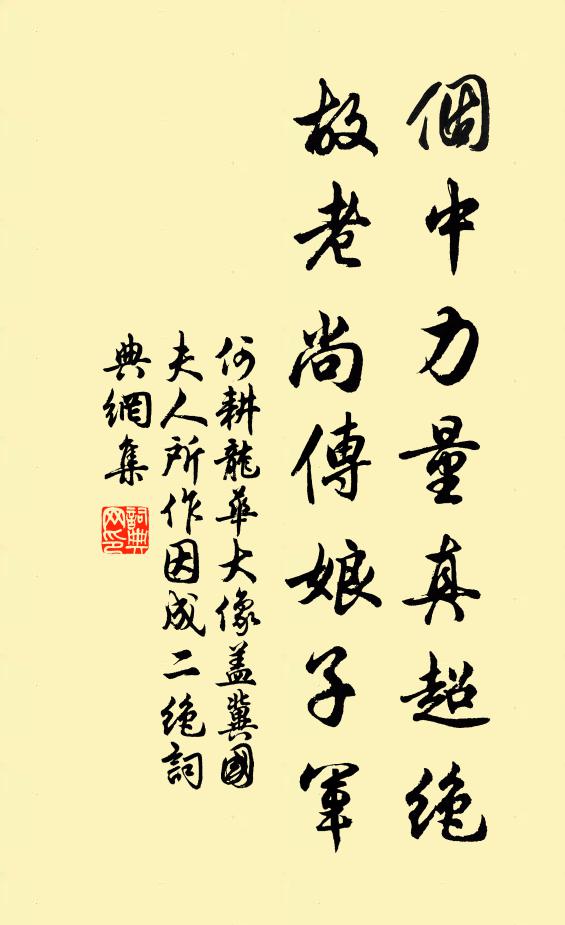 個中力量真超絶
故老尚傳娘子軍
何耕龍華大像盖冀國
夫人所作因成二絶詞
典網集
詞典
网印